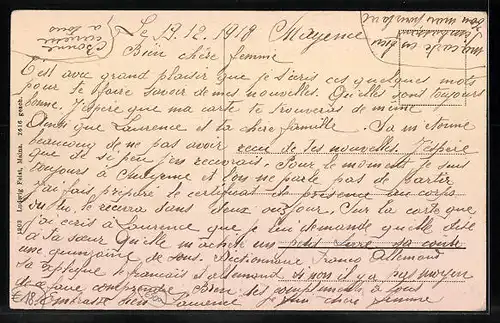 Bonne
année
a tous
Le 19.12.1918 Mayence
Bien chère femme
C'est avec grand plaisir que je t'écris ces quelques mots
pour te faire savoir de mes nouvelles. Qu'elles sont toujours
bonne. J'espère que ma carte te trouveras de même
Ainsi que Laurence et ta chère famille. Sa m'étonne
beaucoup de ne pas avoir recu de tes nouvelles. J'espère
que de si peu j'en recevrais. Pour le moment je suis
toujours à Mayence et l'on ne parle pas de partir
J'ai fais préparé le certificat de présence au corps
ou tu le recevra dans deux ou 3 jour. Sur la carte que
j'ai écris à Laurence que je lui demande qu'elle dise
à ta sœur Qu'elle m'achète un petit livre sa coute
une quinzaine de sous. Dictionnaire Franco Allemand
Sa explique le français et allemand si non il y a pas moyen
de se faire comprendre. Bien des compliments à tous
Embrasse bien Laurence je suis chère femme
1803 Ludwig Feist, Mainz. 3616 gesch.